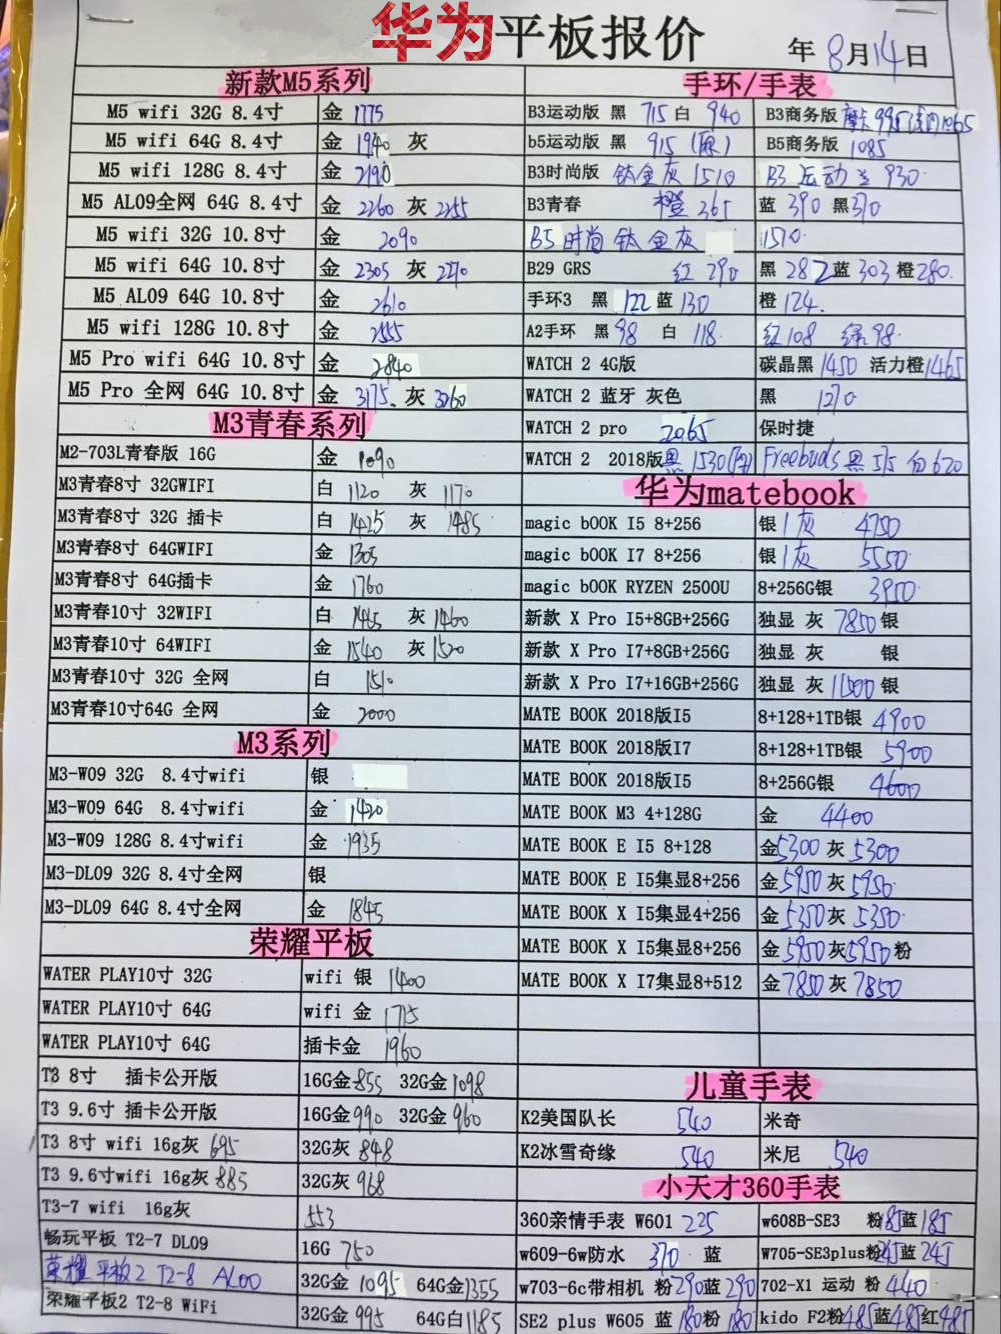 华为平板报价
年 8月14日
新款M5系列
M5 wifi 32G 8.4寸 金 1775
M5 wifi 64G 8.4寸 金 1940 灰
M5 wifi 128G 8.4寸 金 2190
M5 AL09全网 64G 8.4寸 金 2260 灰 2255
M5 wifi 32G 10.8寸 金 2090
M5 wifi 64G 10.8寸 金 2305 灰 2270
M5 AL09 64G 10.8寸 金 2610
M5 wifi 128G 10.8寸 金 2555
M5 Pro wifi 64G 10.8寸 金 2840
M5 Pro 全网 64G 10.8寸 金 3175 灰 3260
M3青春系列
M2-703L青春版 16G 金 1090
M3青春8寸 32GWIFI 白 1120 灰 1170
M3青春8寸 32G 插卡 白 1425 灰 1485
M3青春8寸 64GWIFI 金 1305
M3青春8寸 64G插卡 金 1760
M3青春10寸 32WIFI 白 1465 灰 1460
M3青春10寸 64WIFI 金 1540 灰 1520
M3青春10寸 32G 全网 白 1510
M3青春10寸64G 全网 金 2000
M3系列
M3-W09 32G 8.4寸wifi 银
M3-W09 64G 8.4寸wifi 金 1420
M3-W09 128G 8.4寸wifi 金 1935
M3-DL09 32G 8.4寸全网 银
M3-DL09 64G 8.4寸全网 金 1845
荣耀平板
WATER PLAY10寸 32G wifi 银 1400
WATER PLAY10寸 64G wifi 金 1715
WATER PLAY10寸 64G 插卡金 1960
T3 8寸 插卡公开版 16G金 855 32G金 1098
T3 9.6寸 插卡公开版 16G金 990 32G金 960
T3 8寸 wifi 16g灰 695 32G灰 848
T3 9.6寸wifi 16g灰 885 32G灰 968
T3-7 wifi 16g灰 553
畅玩平板 T2-7 DL09 16G 750
荣耀平板2 T2-8 AL00 32G金 1095 64G金 1355
荣耀平板2 T2-8 WiFi 32G金 995 64G白 1185
手环/手表
B3运动版 黑 715 白 940 B3商务版 摩卡 995 1065
b5运动版 黑 915 (原) B5商务版 1085
B3时尚版 钛金灰 1510 B3 运动 兰 930
B3青春 橙 265 蓝 390 黑 370
B5 时尚 钛金灰 1510
B29 GRS 红 290 黑 282 蓝 303 橙 280
手环3 黑 122 蓝 130 橙 124
A2手环 黑 98 白 118 红 108 绿 98
WATCH 2 4G版 碳晶黑 1450 活力橙 1465
WATCH 2 蓝牙 灰色 黑 1270
WATCH 2 pro 2065 保时捷
WATCH 2 2018版 黑 1530 Freebuds 黑 515 白 620
华为matebook
magic bOOK I5 8+256 银 1灰 4750
magic bOOK I7 8+256 银 1灰 5550
magic bOOK RYZEN 2500U 8+256G银 3950
新款 X Pro I5+8GB+256G 独显 灰 7850 银
新款 X Pro I7+8GB+256G 独显 灰 银
新款 X Pro I7+16GB+256G 独显 灰 银
MATE BOOK 2018版I5 8+128+1TB银 4900
MATE BOOK 2018版I7 8+128+1TB银 5900
MATE BOOK 2018版I5 8+256G银 4600
MATE BOOK M3 4+128G 金 4400
MATE BOOK E I5 8+128 金 5300 灰 5300
MATE BOOK E I5集显8+256 金 5950 灰 5950
MATE BOOK X I5集显4+256 金 5350 灰 5350
MATE BOOK X I5集显8+256 金 5950 灰 5950 粉
MATE BOOK X I7集显8+512 金 7850 灰 7850
儿童手表
K2美国队长 540 米奇
K2冰雪奇缘 540 米尼 540
小天才360手表
360亲情手表 W601 225 w608B-SE3 粉 185 蓝 185
w609-6w防水 370 蓝 W705-SE3plus粉 245 蓝 245
w703-6c带相机 粉 290 蓝 290 702-X1 运动 粉 440
SE2 plus W605 蓝 180 粉 180 kido F2粉 485 蓝 485 红 485